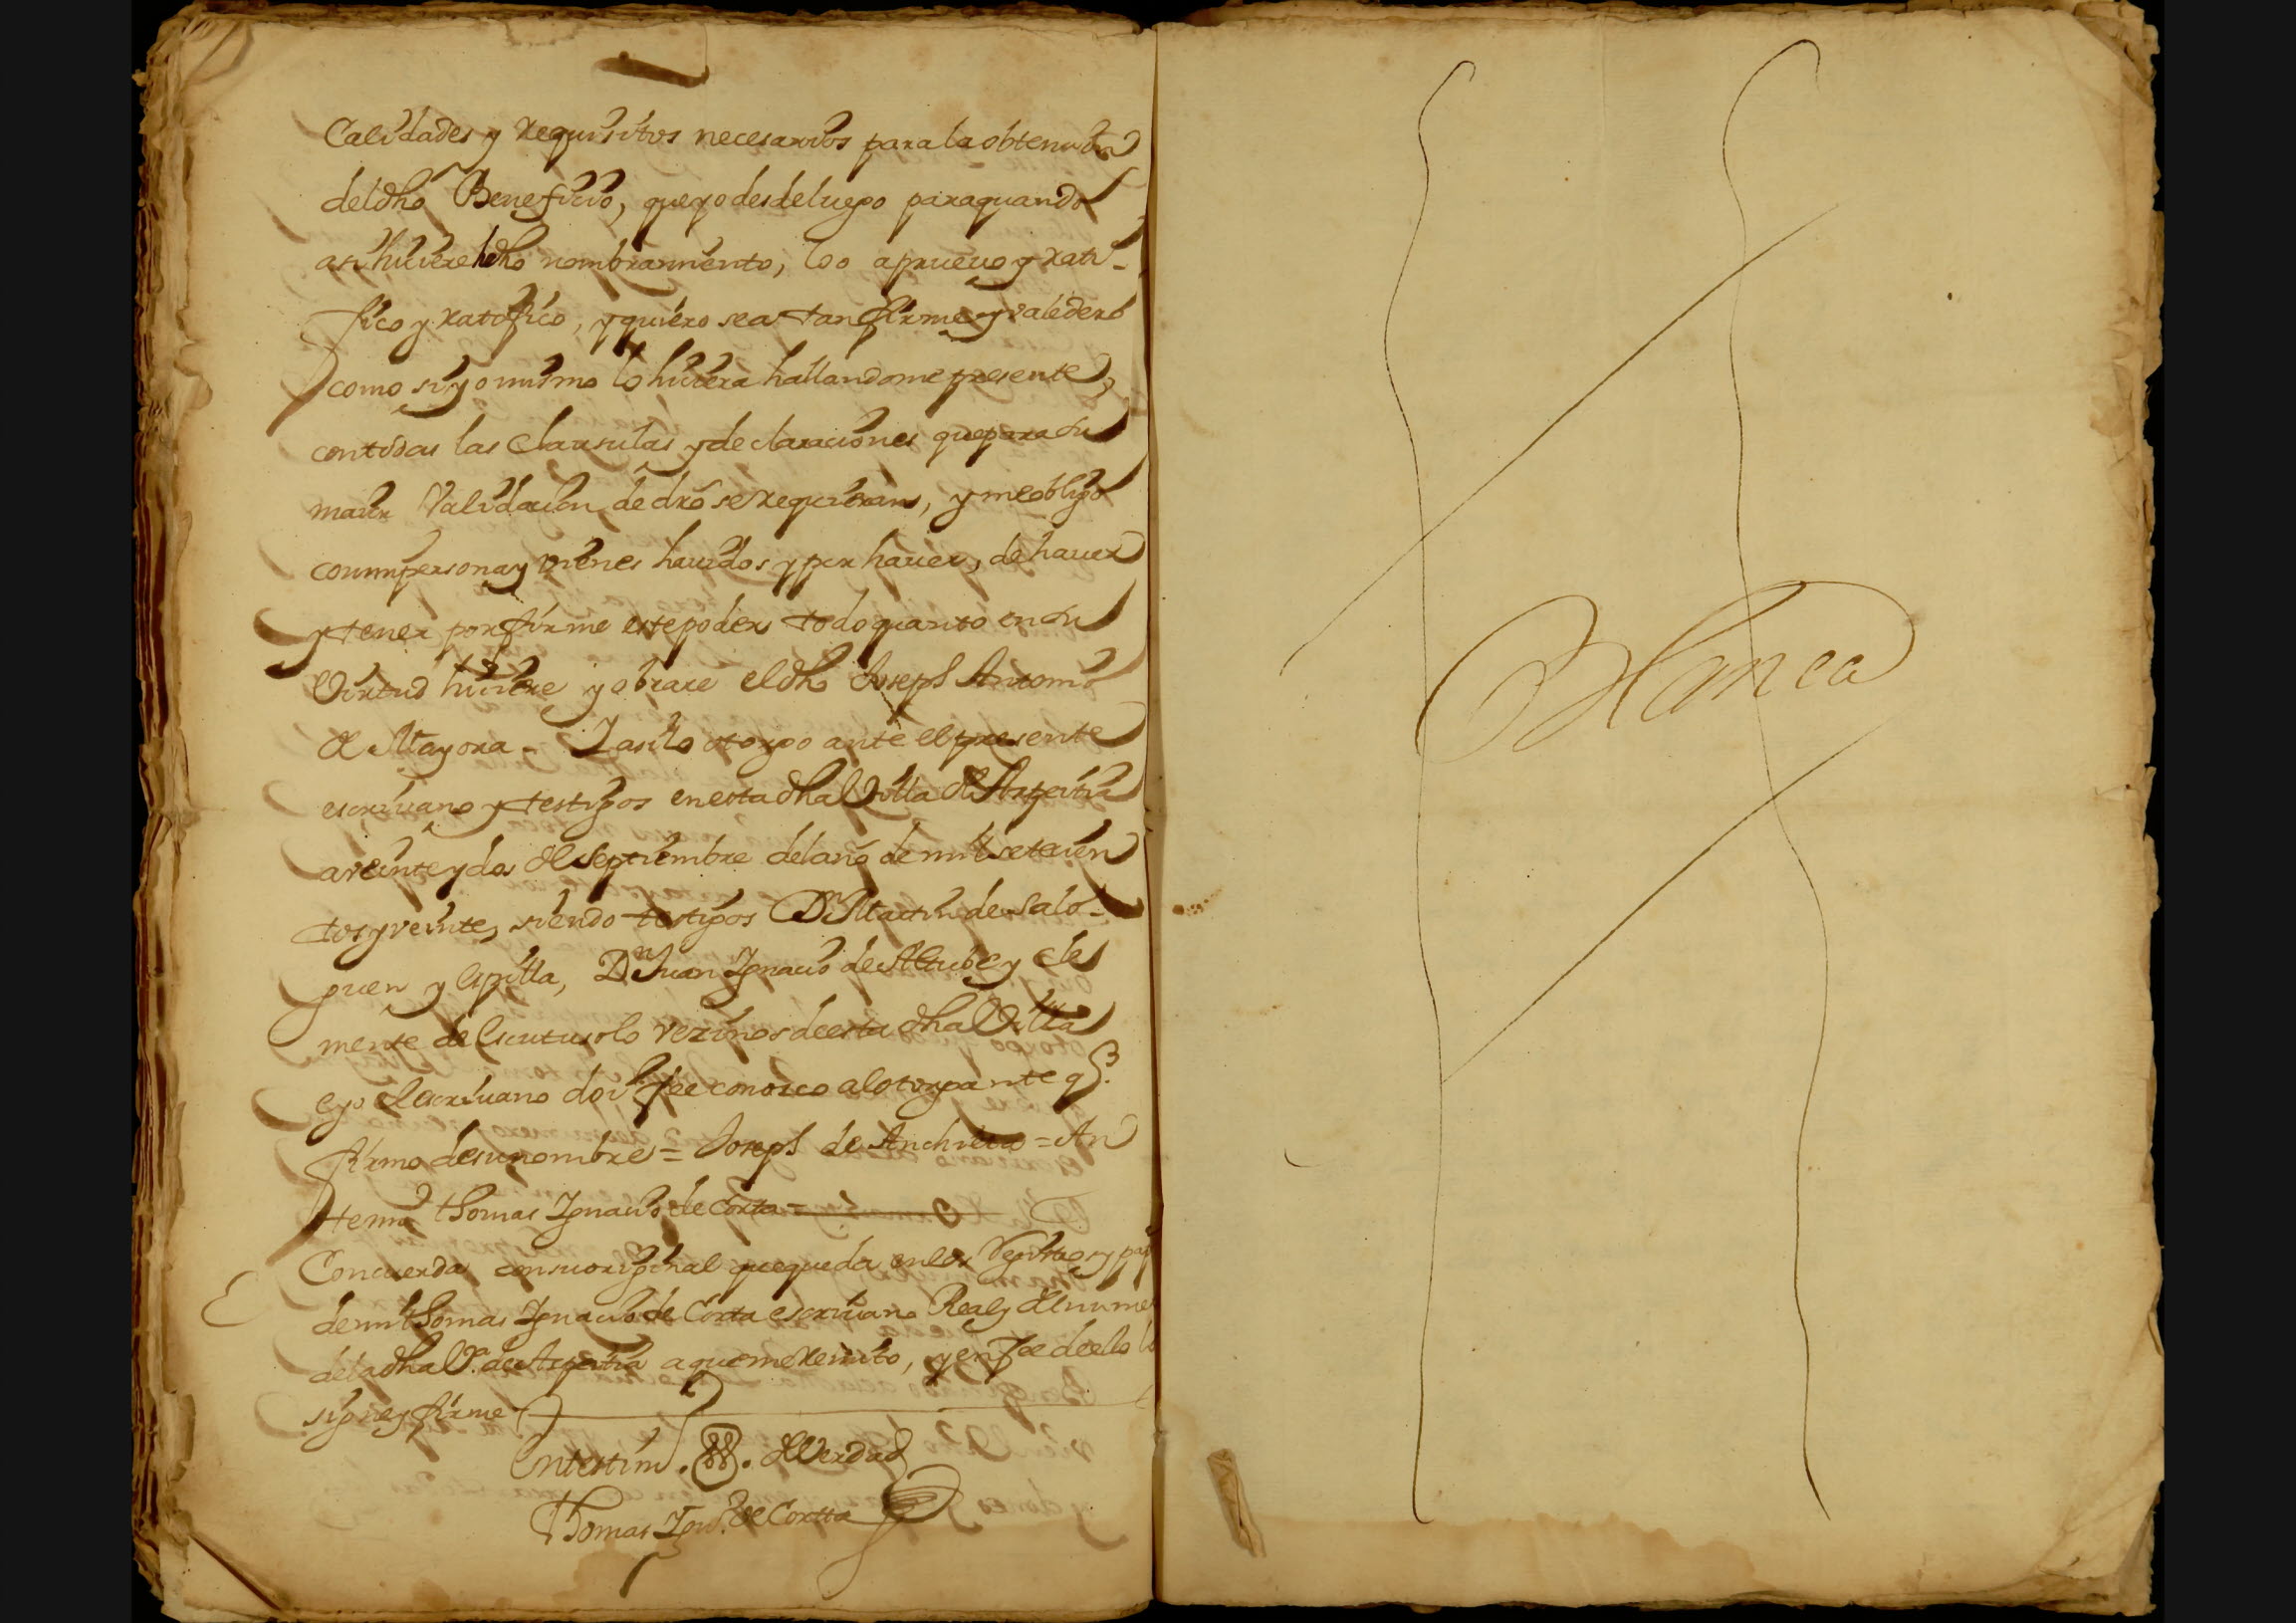 Calidades y requisitos necesarios para la obtencion
del dho Beneficio, que yo desde luego para quando
asi hiciere el dho nombramiento, loo apruevo y rati-
fico y ratifico, y quiero sea tan firme y valedero
como si yo mismo lo hiciera hallandome presente
con todas las Clausulas y declaraciones que para su
maior Validacion de dro se requieran, y me obligo
con mi persona y vienes havidos y por haver, de haver
y tener por firme este poder todo quanto en su
Virtud hiciere y obrare el dho Joseph Antonio
de Mayora - I asi lo otorgo ante el presente
escrivano y testigos en esta dha Villa de Azpeitia
a veinte y dos de Septiembre del año de mil setecien
tos y veinte, siendo testigos Dn Martin de Salo-
guen y Espilla, Dn Juan Ignacio de Altube y Cle
mente de vezinos de esta dha Villa
e yo el escrivano doi fee conosco al otorgante q
firmo de su nombre = Joseph de Anchieta = An
temi thomas Ignacio de Corta =
Concuerda con su original que queda en los Registros y pap
de mi thomas Ignacio de Corta escrivano Real y del nume
de la dha Va. de Azpeitia a que me remito, y en fee de ello lo
signe y firme
En testim . de Verdad
Thomas Ign. de Cortta
Blanca